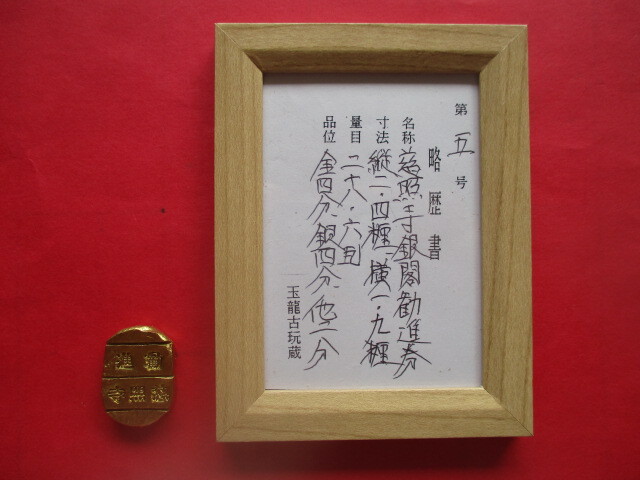 第五号
略歴書
名称 慈照寺銀閣勧進券
寸法 縦二・四糎、横一・九糎
量目 二十八・六瓦
品位 金四分、銀四分、他二分
玉龍古玩蔵
勧進
慈照寺